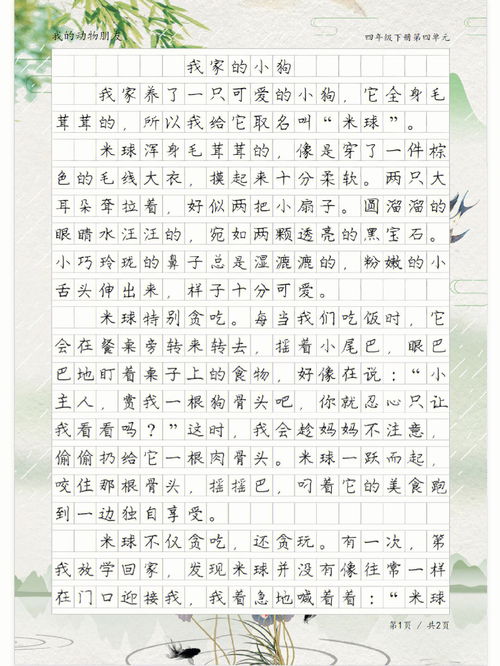 我的动物朋友
四年级下册第四单元
我家的小狗
我家养了一只可爱的小狗，它全身毛
茸茸的，所以我给它取名叫“米球”。
米球浑身毛茸茸的，像是穿了一件棕
色的毛线大衣，摸起来十分柔软。两只大
耳朵耷拉着，好似两把小扇子。圆溜溜的
眼睛水汪汪的，宛如两颗透亮的黑宝石。
小巧玲珑的鼻子总是湿漉漉的，粉嫩的小
舌头伸出来，样子十分可爱。
米球特别贪吃。每当我们吃饭时，它
会在餐桌旁转来转去，摇着小尾巴，眼巴
巴地盯着桌子上的食物，好像在说：“小
主人，赏我一根狗骨头吧，你就忍心只让
我看看吗？”这时，我会趁妈妈不注意，
偷偷扔给它一根肉骨头。米球一跃而起，
咬住那根骨头，摇摇巴，叼着它的美食跑
到一边独自享受。
米球不仅贪吃，还贪玩。有一次，第
我放学回家，发现米球并没有像往常一样
在门口迎接我，我着急地喊着着：“米球
第1页 / 共2页